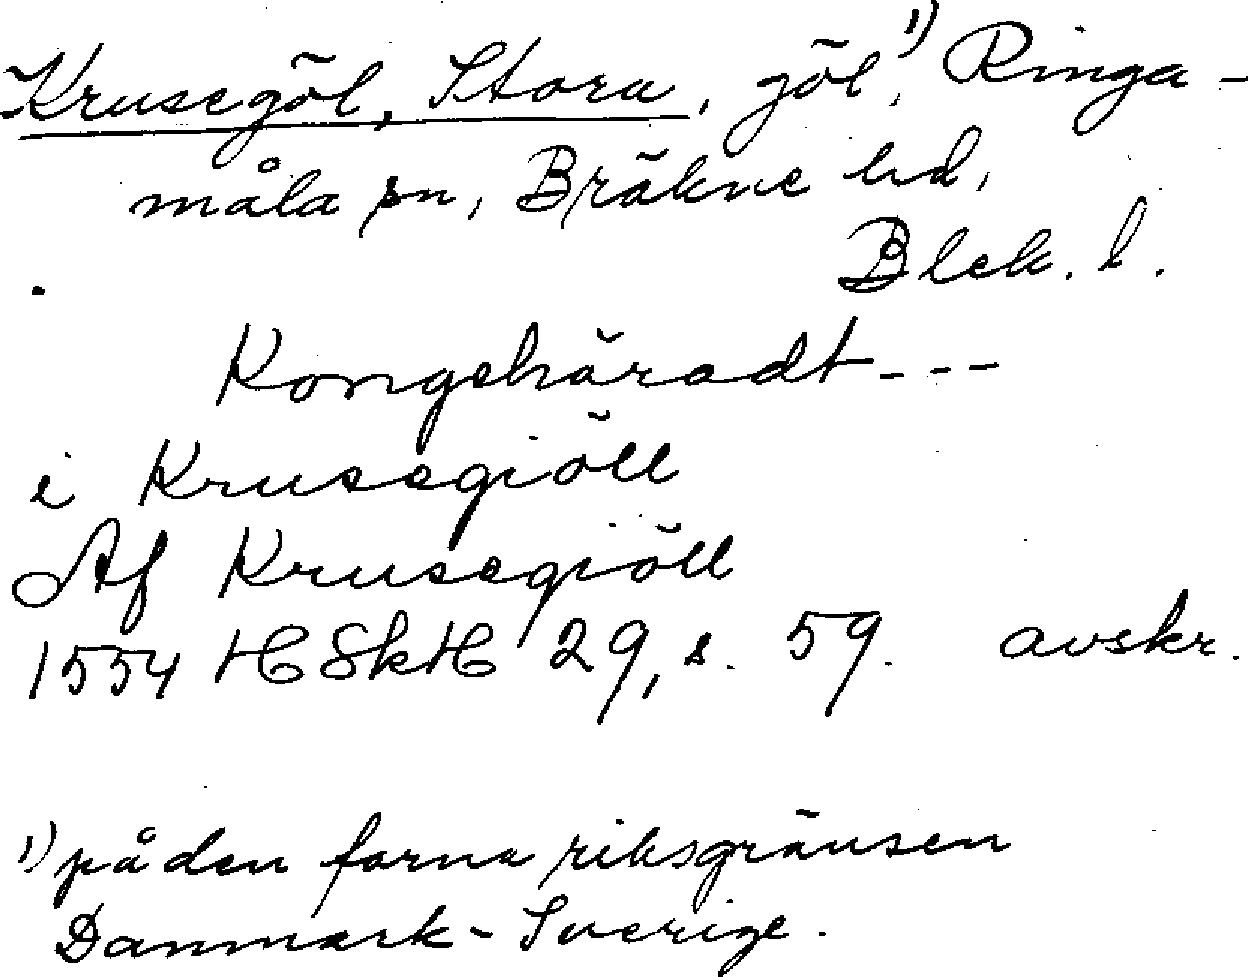 Krusegöl, Stora, göl¹⁾, Ringa-
måla sn, Bräkne hd,
Blek. l.
Kongehäradt ---
i Krusegiöll
Af Krusegiöll
1554 HSkH 29, s. 59. avskr.
¹⁾ på den forna riksgränsen
Danmark - Sverige.